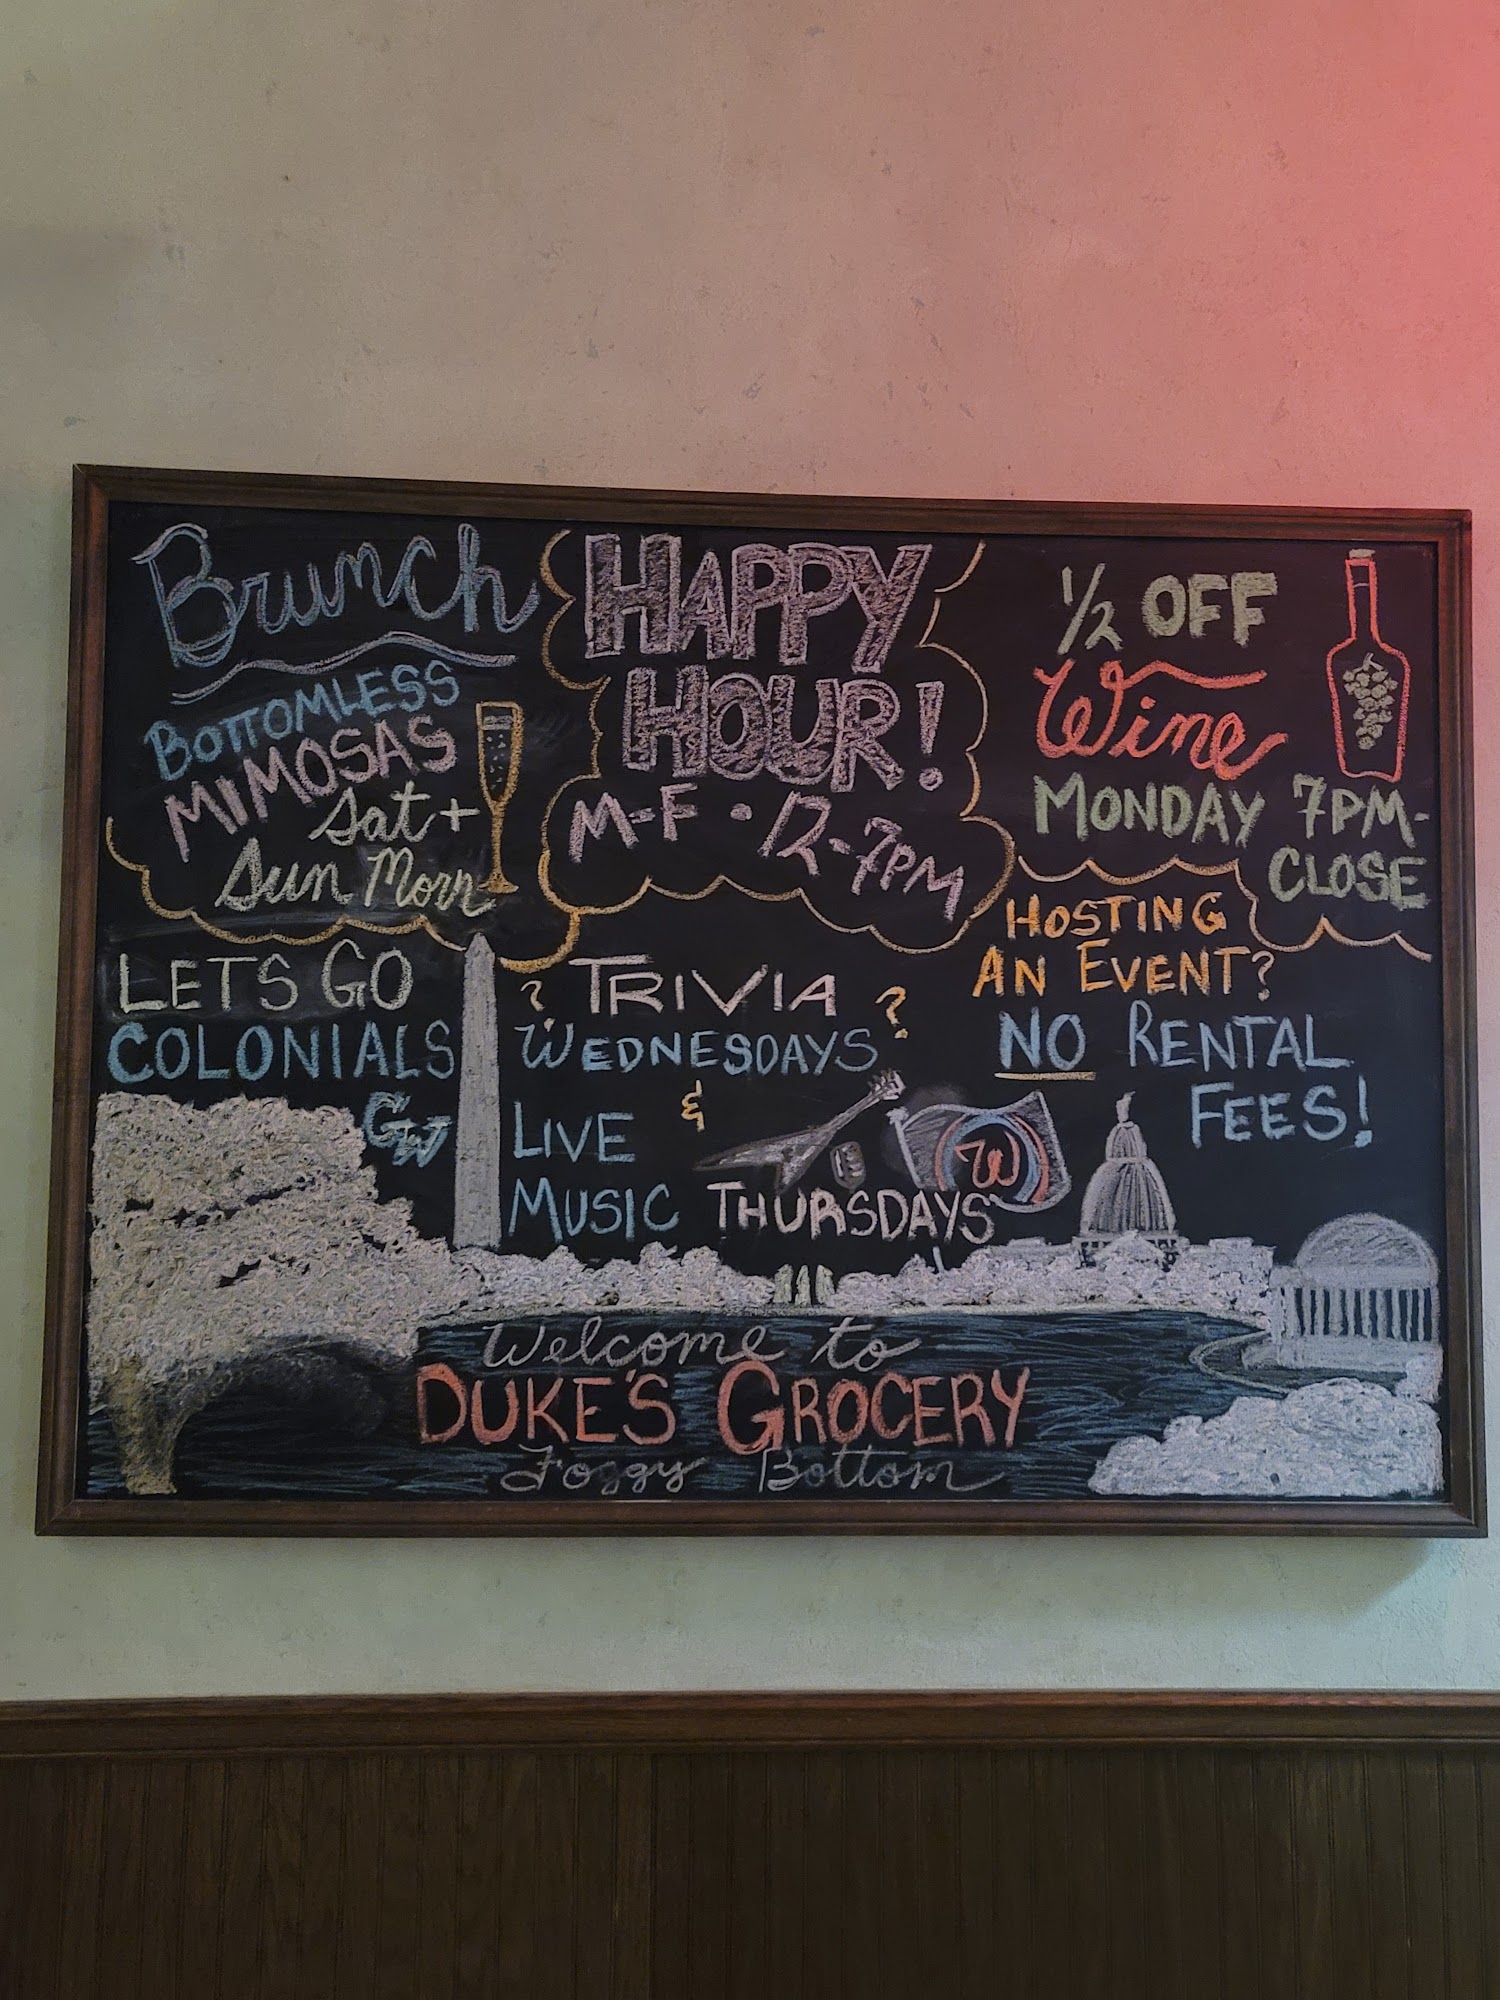 Brunch
BOTTOMLESS
MIMOSAS
Sat +
Sun Morn
HAPPY
HOUR!
M-F • 12-7PM
1/2 OFF
Wine
MONDAY 7PM-
CLOSE
LETS GO
COLONIALS
GW
? TRIVIA ?
WEDNESDAYS
&
LIVE
MUSIC THURSDAYS
W
HOSTING
AN EVENT?
NO RENTAL
FEES!
Welcome to
DUKE'S GROCERY
Foggy Bottom